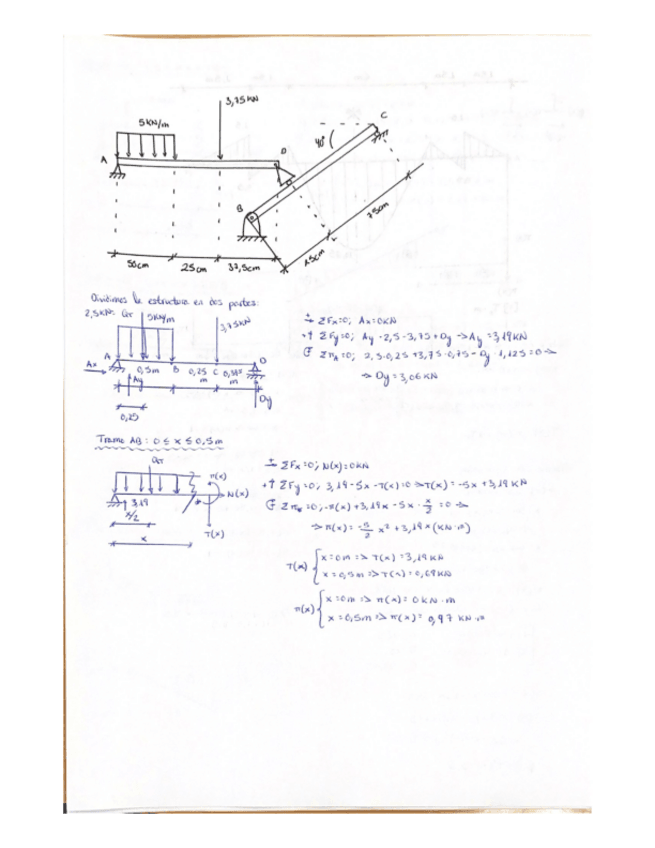 3,75 KN
5 KN/m
A
D
C
40°
B
75cm
45cm
50cm 25cm 37,5cm
Dividimos la estructura en dos partes:
2,5KN: Qr 5KN/m
3,75KN
A B C D
Ax 0,5m 0,25 m 0,375 m
Ay Dy
0,25
ΣFx=0; Ax=0KN
+↑ ΣFy=0; Ay - 2,5 - 3,75 + Dy → Ay = 3,19KN
ΣMA=0; 2,5·0,25 + 3,75·0,75 - Dy · 1,125 = 0 →
→ Dy = 3,06 KN
Tramo AB: 0 ≤ x ≤ 0,5m
Qr
M(x)
N(x)
3,19
x/2
T(x)
x
ΣFx=0; N(x)=0KN
+↑ ΣFy=0; 3,19 - 5x - T(x)=0 → T(x) = -5x + 3,19 KN
ΣMx=0; -M(x) + 3,19x - 5x · x/2 = 0 →
→ M(x) = -5/2 x² + 3,19x (KN·m)
T(x) { x=0m => T(x) = 3,19KN
x=0,5m => T(x) = 0,69KN
M(x) { x=0m => M(x) = 0 KN·m
x=0,5m => M(x) = 0,97 KN·m